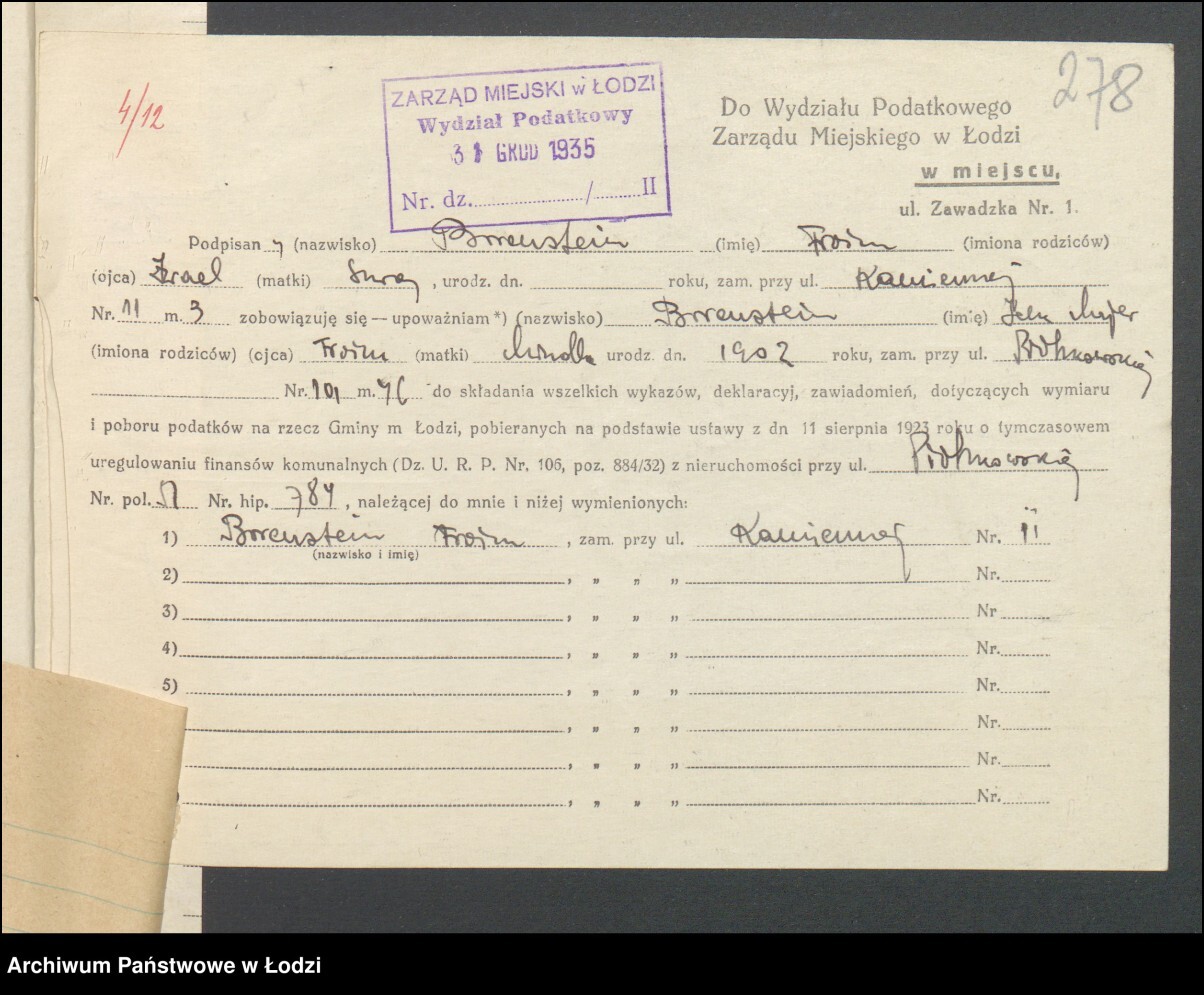 278
4/12
ZARZĄD MIEJSKI w ŁODZI
Wydział Podatkowy
31 GRUD 1935
Nr. dz. / II
Do Wydziału Podatkowego
Zarządu Miejskiego w Łodzi
w miejscu,
ul. Zawadzka Nr. 1.
Podpisan y (nazwisko) Borenstein (imię) Froim (imiona rodziców)
(ojca) Izrael (matki) Sura, urodz. dn. roku, zam. przy ul. Kamiennej
Nr. 11 m. 3 zobowiązuję się — upoważniam *) (nazwisko) Borenstein (imię) Majer
(imiona rodziców) (ojca) Froim (matki) urodz. dn. 1902 roku, zam. przy ul. Piotrkowskiej
Nr. m. do składania wszelkich wykazów, deklaracyj, zawiadomień, dotyczących wymiaru
i poboru podatków na rzecz Gminy m Łodzi, pobieranych na podstawie ustawy z dn 11 sierpnia 1923 roku o tymczasowem
uregulowaniu finansów komunalnych (Dz. U. R. P. Nr. 106, poz. 884/32) z nieruchomości przy ul. Piotrkowskiej
Nr. pol. Nr. hip. 784, należącej do mnie i niżej wymienionych:
1) Borenstein Froim, zam. przy ul. Kamiennej Nr. 11
(nazwisko i imię)
2) , „ „ „ Nr.
3) , „ „ „ Nr
4) , „ „ „ Nr.
5) , „ „ „ Nr.
, „ „ „ Nr.
, „ „ „ Nr.
, „ „ „ Nr.
Archiwum Państwowe w Łodzi